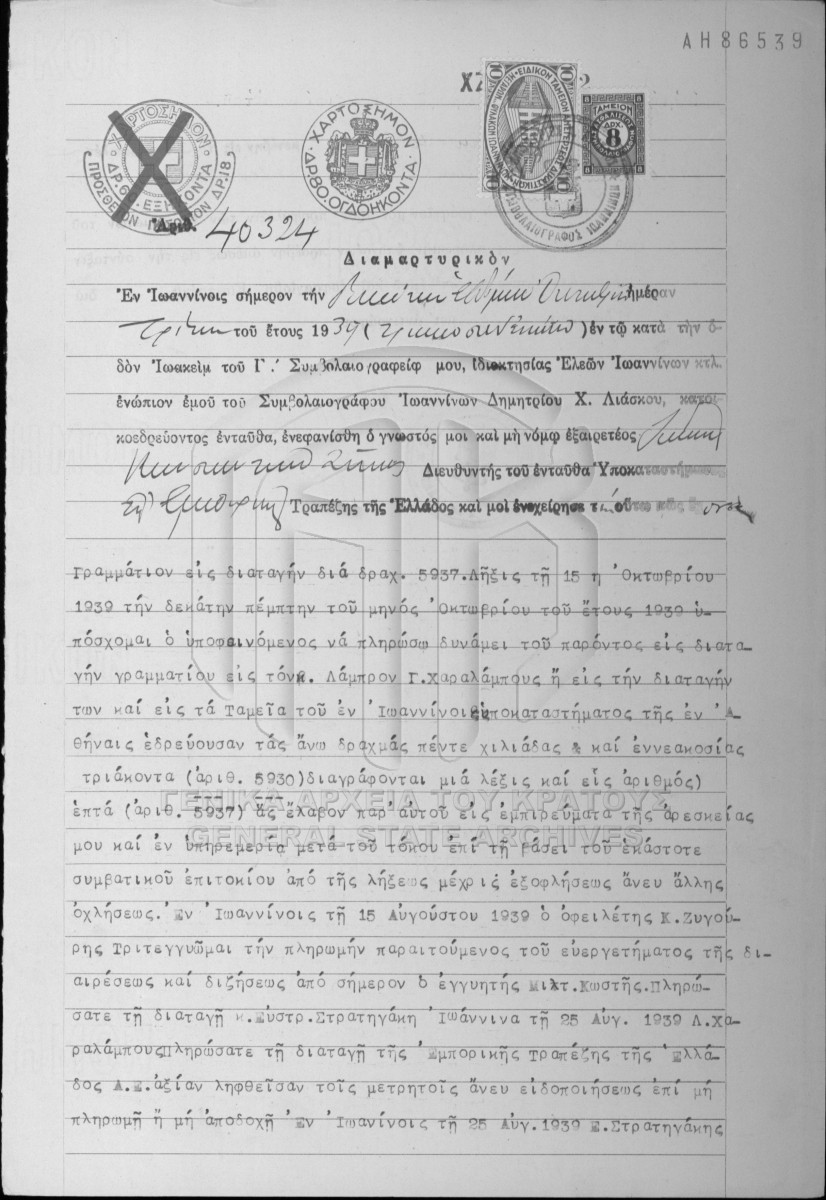 ΑΗ86539
ΧΑΡΤΟΣΗΜΟΝ
ΔΡ. 60. ΕΞΗΚΟΝΤΑ
ΠΡΟΣΘΕΤΟΝ ΠΟΣΟΣΤΟΝ ΔΡ.18
ΧΑΡΤΟΣΗΜΟΝ
ΔΡ.80.ΟΓΔΟΗΚΟΝΤΑ
10 ΕΙΔΙΚΟΝ ΤΑΜΕΙΟΝ 10
ΤΑΜΕΙΟΝ
ΔΡΧ.
8
ΣΥΜΒΟΛΑΙΟΓΡΑΦΟΣ ΙΩΑΝΝΙΝΩΝ
Ἀριθ. 40324
Διαμαρτυρικὸν
Ἐν Ἰωαννίνοις σήμερον τὴν εἰκοστὴν ἑβδόμην ἡμέραν
Τρίτην τοῦ ἔτους 1939 ( ) ἐν τῷ κατὰ τὴν ὁ-
δὸν Ἰωακεὶμ τοῦ Γ.′ Συμβολαιογραφείῳ μου, ἰδιοκτησίας Ἐλεῶν Ἰωαννίνων κτλ.
ἐνώπιον ἐμοῦ τοῦ Συμβολαιογράφου Ἰωαννίνων Δημητρίου Χ. Λιάσκου, κατοι-
κοεδρεύοντος ἐνταῦθα, ἐνεφανίσθη ὁ γνωστός μοι καὶ μὴ νόμῳ ἐξαιρετέος
Διευθυντὴς τοῦ ἐνταῦθα Ὑποκαταστήματος
τῆς Ἐμπορικῆς Τραπέζης τῆς Ἑλλάδος καὶ μοὶ ἐνεχείρησε
Γραμμάτιον εἰς διαταγήν διά δραχ. 5937.Λῆξις τῇ 15 η Ὀκτωβρίου
1939 τήν δεκάτην πέμπτην τοῦ μηνός Ὀκτωβρίου τοῦ ἔτους 1939 ὑ-
πόσχομαι ὁ ὑποφαινόμενος νά πληρώσω δυνάμει τοῦ παρόντος εἰς διατα-
γήν γραμματίου εἰς τόν κ. Λάμπρον Γ.Χαραλάμπους ἤ εἰς τήν διαταγήν
των καί εἰς τά Ταμεῖα τοῦ ἐν Ἰωαννίνοις ὑποκαταστήματος τῆς ἐν Ἀ-
θήναις ἑδρεύουσαν τάς ἄνω δραχμάς πέντε χιλιάδας & καί ἐννεακοσίας
τριάκοντα (ἀριθ. 5930)διαγράφονται μιά λέξις καί εἷς ἀριθμός)
ἑπτά (ἀριθ. 5937) ἅς ἔλαβον παρ'αὐτοῦ εἰς ἐμπορεύματα τῆς ἀρεσκείας
μου καί ἐν ὑπηρεμερίᾳ μετά τοῦ τόκου ἐπί τῇ βάσει τοῦ ἑκάστοτε
συμβατικοῦ ἐπιτοκίου ἀπό τῆς λήξεως μέχρις ἐξοφλήσεως ἄνευ ἄλλης
ὀχλήσεως.Ἐν Ἰωαννίνοις τῇ 15 Αὐγούστου 1939 ὁ ὀφειλέτης Κ.Ζυγού-
ρης Τριτεγγυῶμαι τήν πληρωμήν παραιτούμενος τοῦ εὐεργετήματος τῆς δι-
αιρέσεως καί διζήσεως ἀπό σήμερον ὁ ἐγγυητής Μιλτ.Κωστῆς.Πληρώ-
σατε τῇ διαταγῇ κ.Εὐστρ.Στρατηγάκη Ἰωάννινα τῇ 25 Αὐγ. 1939 Λ.Χα-
ραλάμπουςΠληρώσατε τῇ διαταγῇ τῆς Ἐμπορικῆς Τραπέζης τῆς Ἑλλά-
δος Α.Ε.ἀξίαν ληφθεῖσαν τοῖς μετρητοῖς ἄνευ εἰδοποιήσεως ἐπί μή
πληρωμῇ ἤ μή ἀποδοχῇ Ἐν Ἰωανίνοις τῇ 25 Αὐγ.1939 Ε.Στρατηγάκης
ΓΕΝΙΚΑ ΑΡΧΕΙΑ ΤΟΥ ΚΡΑΤΟΥΣ
GENERAL STATE ARCHIVES